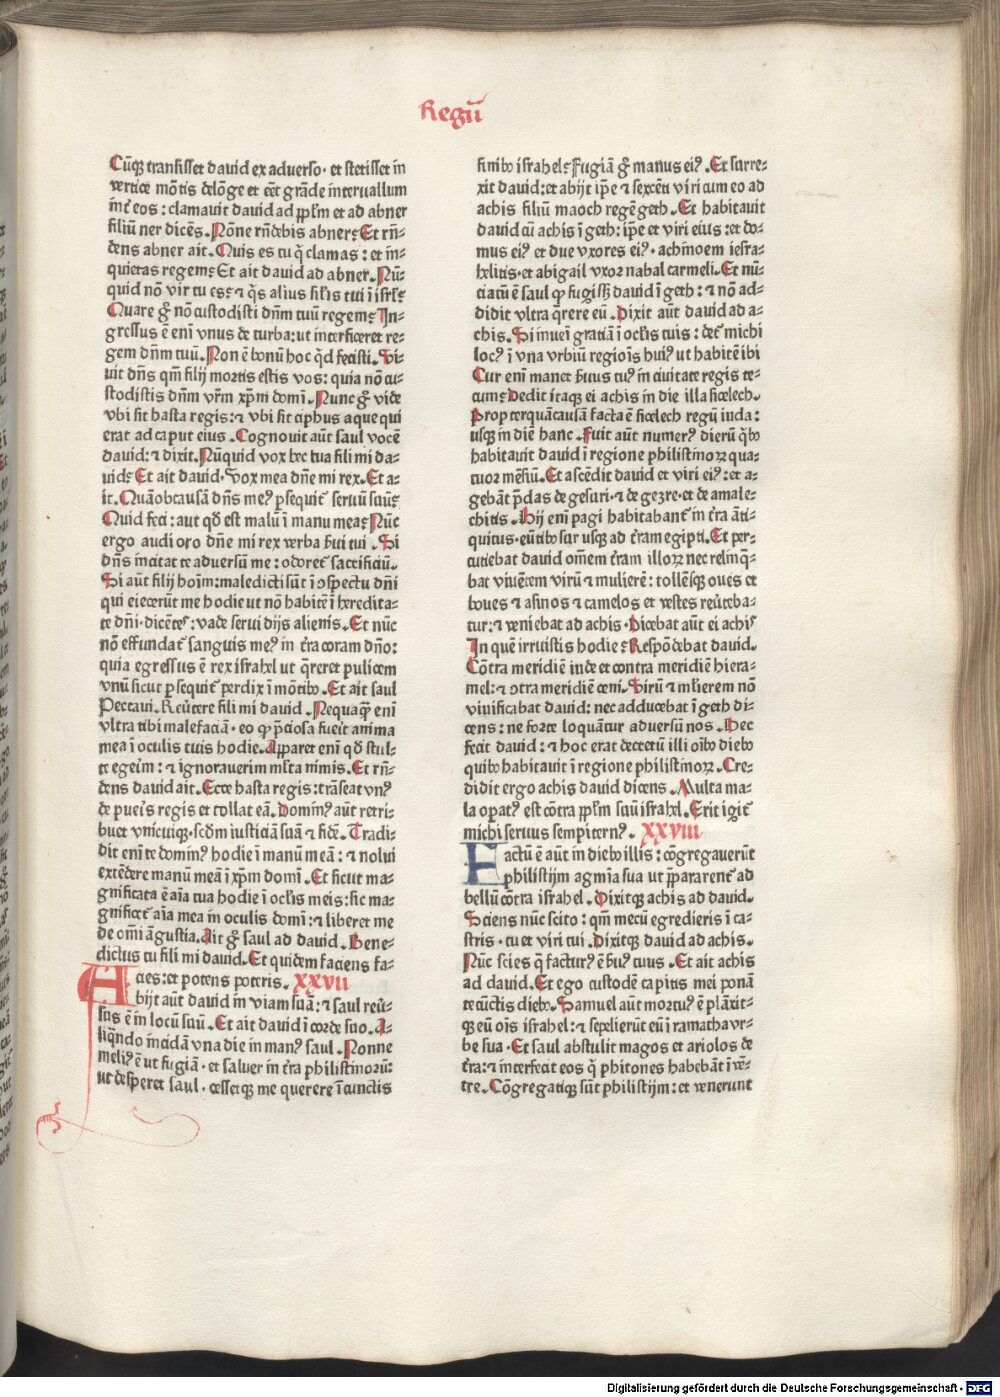 Regū
Cūqꝫ transisset david ex adverso· et stetisset in
vertice mōtis delōge et eēt grāde intervallum
int̄ eos: clamavit david ad pplm̄ et ad abner
filiū ner dicēs. Nōne rn̄debis abner? Et rn̄-
dens abner ait. Quis es tu q̄ clamas: et in-
quietas regem? Et ait david ad abner. Nū-
quid nō vir tu es? ⁊ q̄s alius sil̄is tui ī isrl̄?
Quare gͦ nō custodisti dn̄m tuū regem? In-
gressus ē enī vnus de turba: ut interficeret re-
gem dn̄m tuū. Non ē bonū hoc qd̄ fecisti. Vi-
vit dn̄s qm̄ filij mortis estis vos: quia nō cu-
stodistis dn̄m vr̄m xp̄m domī. Nunc gͦ vide
vbi sit hasta regis: ⁊ vbi sit ciphus aque qui
erat ad caput eius. Cognovit aūt saul vocē
david: ⁊ dixit. Nūquid vox hec tua fili mi da-
vid? Et ait david. Vox mea dn̄e mi rex. Et a-
it. Quā ob causā dn̄s meꝰ ꝑsequit᷑ servū suū?
Quid feci: aut qd̄ est malū ī manu mea? Nūc
ergo audi oro dn̄e mi rex verba ẜvi tui. Si
dn̄s incitat te adversū me: odoret᷑ sacrificiū.
Si aūt filij hoīm: maledicti sūt ī ꝯspectu dn̄i
qui eiecerūt me hodie ut nō habitē ī heredita-
te dn̄i· dicētes: vade servi dijs alienis. Et nūc
nō effundat᷑ sanguis meꝰ in t̄ra coram dn̄o:
quia egressus ē rex israhel ut q̄reret pulicem
vnū sicut ꝑsequit᷑ perdix ī mōtibꝰ. Et ait saul
Peccavi. Revertere fili mi david. Nequaqꝫ enī
vltra tibi malefaciā· eo qͦ p̄ciosa fuerit anima
mea ī oculis tuis hodie. Apparet enī qd̄ stul-
te egerim: ⁊ ignoraverim ml̄ta nimis. Et rn̄-
dens david ait. Ecce hasta regis: trāseat vnꝰ
de pueris regis et tollat eā. Dominꝰ aūt retri-
buet vnicuiqꝫ scd̄m iusticiā suā ⁊ fidē. Tradi-
dit enī te dominꝰ hodie ī manū meā: ⁊ nolui
extēdere manū meā ī xp̄m domī. Et sicut ma-
gnificata ē aīa tua hodie ī ocl̄is meis: sic ma-
gnificet᷑ aīa mea in oculis domī: ⁊ liberet me
de omī āgustia. Ait gͦ saul ad david. Bene-
dictus tu fili mi david. Et quidem faciens fa-
cies: et potens poteris. XXVII
Abijt aūt david in viam suā: ⁊ saul revͤ-
sus ē in locū suū. Et ait david ī corde suo. A-
liqn̄do incidā vna die in manꝰ saul. Nonne
meliꝰ ē ut fugiā· et salver in t̄ra philistinorū:
ut desperet saul· cessetqꝫ me querere ī cunctis
finibꝰ israhel? Fugiā gͦ manus eiꝰ. Et surre-
xit david: et abijt ip̄e ⁊ sexcēti viri cum eo ad
achis filiū maoch regē geth. Et habitavit
david cū achis ī geth: ip̄e et viri eius: et do-
mus eiꝰ et due vxores eiꝰ· achinoem iesra-
helitis· et abigail vxor nabal carmeli. Et nū-
ciatū ē saul qͦ fugiss̄ david ī geth: ⁊ nō ad-
didit vltra q̄rere eū. Dixit aūt david ad a-
chis. Si inveni gratiā ī ocl̄is tuis: det᷑ michi
locꝰ ī vna vrbiū regiōis huiꝰ ut habitē ibi
Cur enī manet ẜvus tuꝰ in civitate regis te-
cum? Dedit itaqꝫ ei achis in die illa sicelech.
Propter quā causā facta ē sicelech regū iuda:
usqꝫ in diē hanc. Fuit aūt numerꝰ dierū q̄bꝰ
habitavit david ī regione philistinorꝝ qua-
tuor mēsiū. Et ascēdit david et viri eiꝰ: et a-
gebāt p̄das de gesuri· ⁊ de gezre· et de amale-
chitis. Hij enī pagi habitabant᷑ in t̄ra āti-
quitus· eūtibꝰ sur usqꝫ ad t̄ram egipti. Et per-
cutiebat david om̄em t̄ram illorꝝ nec relinq̄-
bat vivētem virū ⁊ mulierē: tollēsqꝫ oves et
boves ⁊ asinos ⁊ camelos et vestes revͤteba-
tur: ⁊ veniebat ad achis. Dicebat aūt ei achis
In quē irruistis hodie? Respōdebat david.
Cōtra meridiē inde et contra meridiē hiera-
mel: ⁊ ꝯtra meridiē ceni. Virū ⁊ ml̄ierem nō
vivificabat david: nec adducebat ī geth di-
cens: ne forte loquātur adversū nos. Hec
fecit david: ⁊ hoc erat decretū illi oībꝰ diebꝰ
quibꝰ habitavit ī regione philistinorꝝ. Cre-
didit ergo achis david dicens. Multa ma-
la operatꝰ est cōtra pplm̄ suū israhel. Erit igit᷑
michi servus sempiternꝰ. XXVIII
Factū ē aūt in diebꝰ illis: cōgregaverūt
philistijm agmīa sua ut p̄pararent᷑ ad
bellū cōtra israhel. Dixitqꝫ achis ad david.
Sciens nūc scito: qm̄ mecū egredieris ī ca-
stris· tu et viri tui. Dixitqꝫ david ad achis.
Nūc scies q̄ facturꝰ ē ẜvꝰ tuus. Et ait achis
ad david. Et ego custodē capitis mei ponā
te cūctis diebꝰ. Samuel aūt mortuꝰ ē plāxit-
qꝫ eū oīs israhel: ⁊ sepelierūt eū ī ramatha vr-
be sua. Et saul abstulit magos et ariolos de
t̄ra: ⁊ interfecit eos q̄ phitones habebāt ī vē-
tre. Cōgregatiqꝫ sūt philistijm: et venerunt
Digitalisierung gefördert durch die Deutsche Forschungsgemeinschaft - DFG